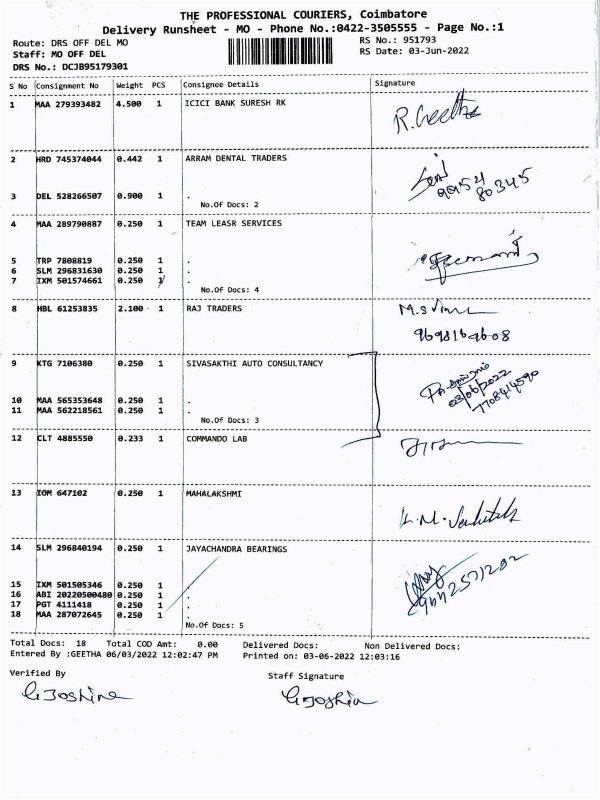 THE PROFESSIONAL COURIERS, Coimbatore
Delivery Runsheet - MO - Phone No.:0422-3505555 - Page No.:1
Route: DRS OFF DEL MO RS No.: 951793
Staff: MO OFF DEL RS Date: 03-Jun-2022
DRS No.: DCJB95179301
S No Consignment No Weight PCS Consignee Details Signature
1 MAA 279393482 4.500 1 ICICI BANK SURESH RK
R. Geetha
2 HRD 745374044 0.442 1 ARRAM DENTAL TRADERS
99524
80345
3 DEL 528266507 0.900 1 .
No.Of Docs: 2
4 MAA 289790887 0.250 1 TEAM LEASR SERVICES
5 TRP 7808819 0.250 1 .
6 SLM 296831630 0.250 1 .
7 IXM 501574661 0.250 1 .
No.Of Docs: 4
8 HBL 61253835 2.100 1 RAJ TRADERS
9 KTG 7106380 0.250 1 SIVASAKTHI AUTO CONSULTANCY
03/06/2022
7708414590
10 MAA 565353648 0.250 1 .
11 MAA 562218561 0.250 1 .
No.Of Docs: 3
12 CLT 4885550 0.233 1 COMMANDO LAB
13 IOM 647102 0.250 1 MAHALAKSHMI
14 SLM 296840194 0.250 1 JAYACHANDRA BEARINGS
15 IXM 501505346 0.250 1 .
16 ABI 20220500480 0.250 1 .
17 PGT 4111418 0.250 1 .
18 MAA 287072645 0.250 1 .
No.Of Docs: 5
Total Docs: 18 Total COD Amt: 0.00 Delivered Docs: Non Delivered Docs:
Entered By :GEETHA 06/03/2022 12:02:47 PM Printed on: 03-06-2022 12:03:16
Verified By Staff Signature
G Joshina G Joshin